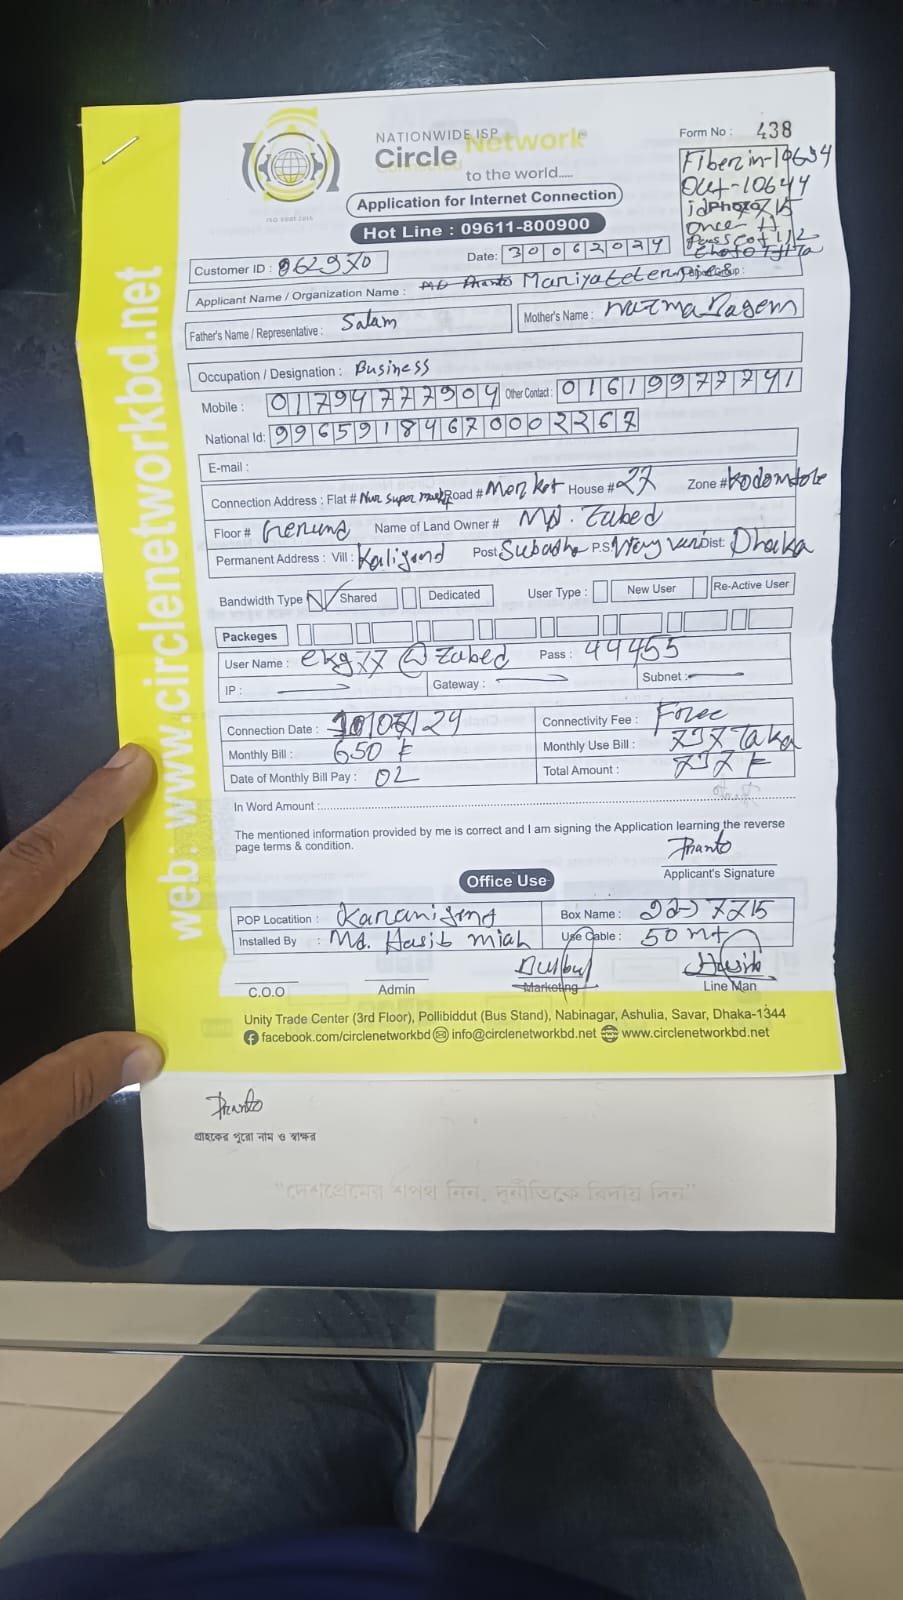 NATIONWIDE ISP
Circle Network
to the world.....
ISO 9001:2015
Form No : 438
Fiber in-10694
Out-10644
Application for Internet Connection
Hot Line : 09611-800900
Customer ID :
Date: 30062024
Applicant Name / Organization Name : Md Pranto
Father's Name / Representative : Salam
Mother's Name : Nazma Bagem
Occupation / Designation : Business
Mobile : 01794777904 Other Contact : 01619977741
National Id: 99659184670002267
E-mail :
Connection Address : Flat # Nur super Road # Market House # 27 Zone # Kodomtole
Floor # Name of Land Owner # Md. Zabed
Permanent Address : Vill : Kaligond Post Subadha P.S Dist: Dhaka
Bandwidth Type Shared Dedicated User Type : New User Re-Active User
Packeges
User Name : @zabed Pass : 44455
IP : Gateway : Subnet :
Connection Date : Connectivity Fee : Free
Monthly Bill : 650 Monthly Use Bill : Taka
Date of Monthly Bill Pay : 02 Total Amount :
In Word Amount :
The mentioned information provided by me is correct and I am signing the Application learning the reverse
page terms & condition.
Pranto
Applicant's Signature
Office Use
POP Locatition : Karanigond Box Name :
Installed By : Md. Hasib miah Use Cable : 50 mt
Hasib
C.O.O Admin Marketing Line Man
Unity Trade Center (3rd Floor), Pollibiddut (Bus Stand), Nabinagar, Ashulia, Savar, Dhaka-1344
facebook.com/circlenetworkbd info@circlenetworkbd.net www.circlenetworkbd.net
web: www.circlenetworkbd.net
Pranto
গ্রাহকের পুরো নাম ও স্বাক্ষর
"দেশপ্রেমের শপথ নিন, দুর্নীতিকে বিদায় দিন"